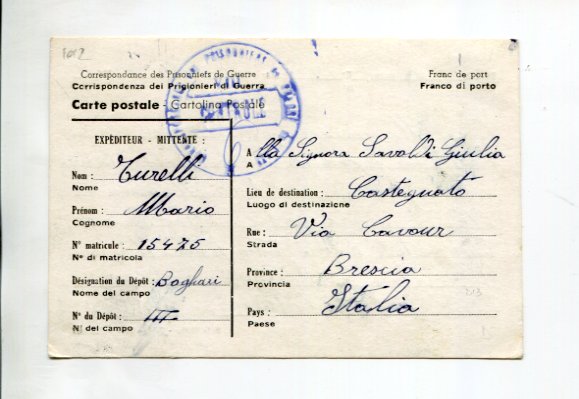 Correspondance des Prisonniers de Guerre
Corrispondenza dei Prigionieri di Guerra
Carte postale - Cartolina Postale
Franc de port
Franco di porto
EXPÉDITEUR - MITTENTE :
Nom : Turelli
Nome
Prénom : Mario
Cognome
N° matricule : 15475
N° di matricola
Désignation du Dépôt : Boghari
Nome del campo
N° du Dépôt : III
N. del campo
A lla Signora Savoldi Giulia
A
Lieu de destination : Castegnato
Luogo di destinazione
Rue : Via Cavour
Strada
Province : Brescia
Provincia
Pays : Italia
Paese
PRISONNIERS DE GUERRE